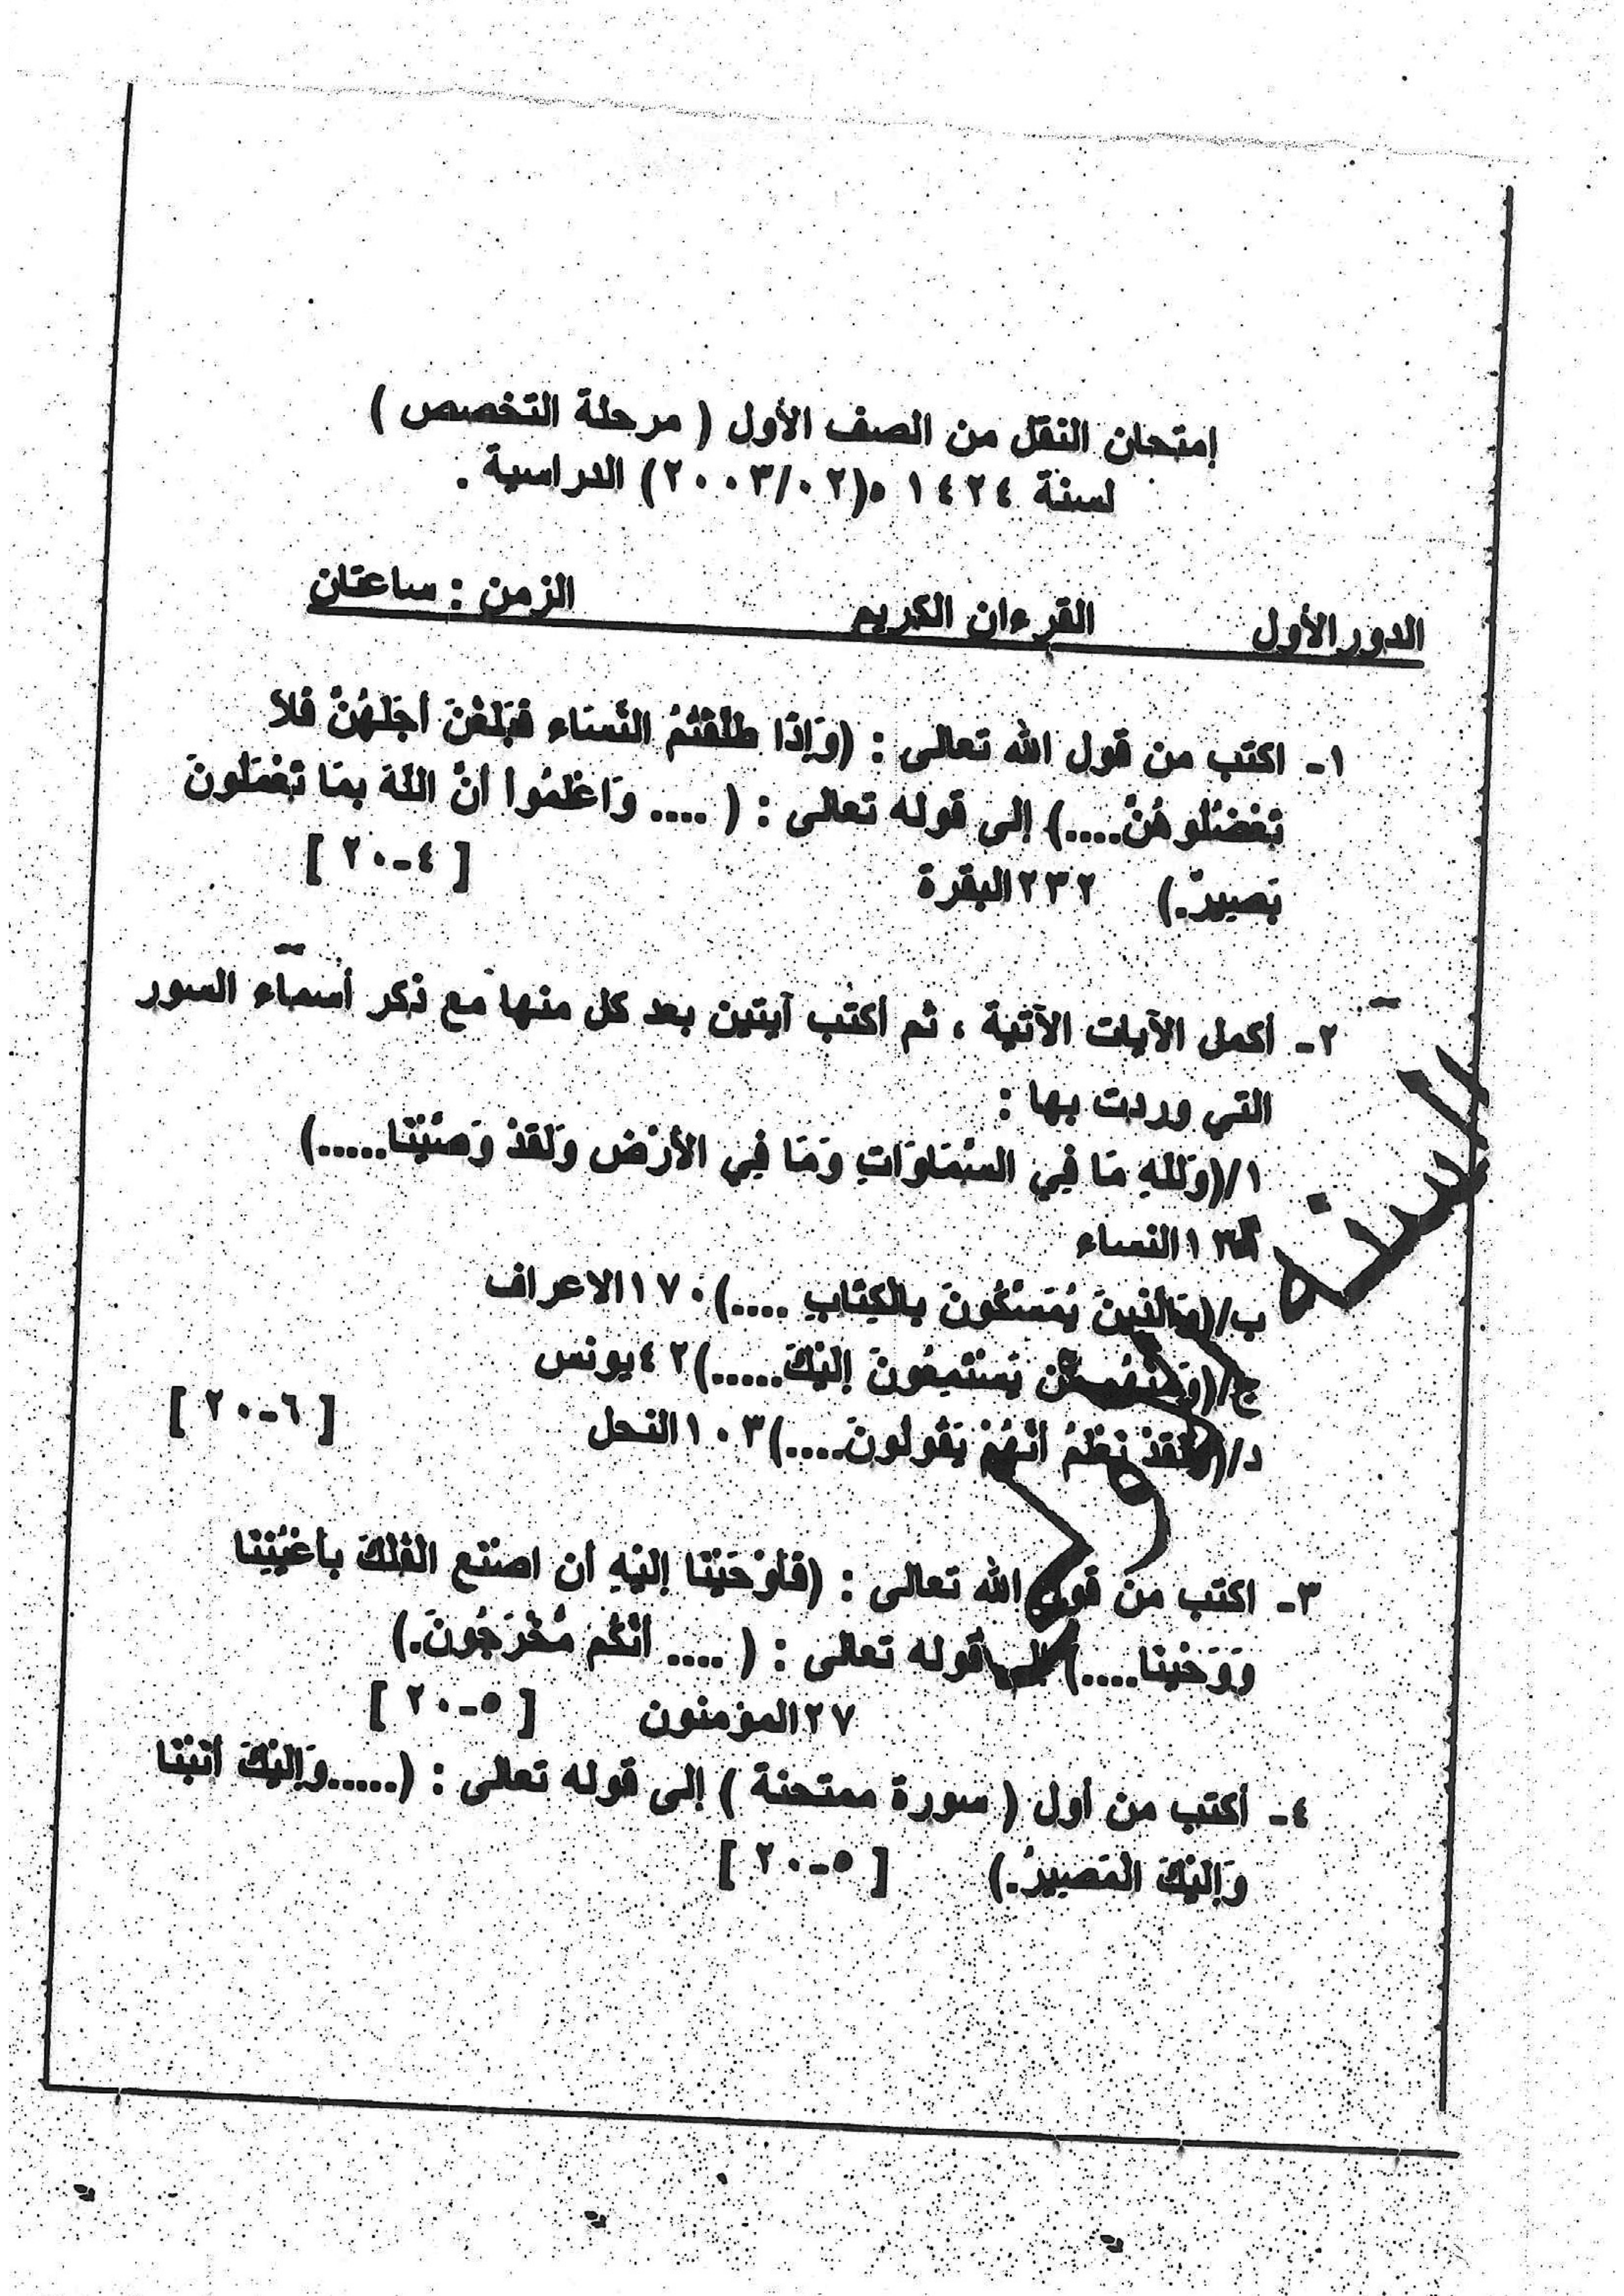 إمتحان النقل من الصف الأول ( مرحلة التخصص )
لسنة ١٤٢٤ ه(٢٠٠٣/٠٢) الدراسية .
الدور الأول القرءان الكريم الزمن : ساعتان
١- اكتب من قول الله تعالى : (وَإِذَا طَلَّقْتُمُ النِّسَاء فَبَلَغْنَ أَجَلَهُنَّ فَلاَ
تَعْضُلُوهُنَّ....) إلى قوله تعالى : ( .... وَاعْلَمُوا أَنَّ اللَّهَ بِمَا تَعْمَلُونَ
بَصِيرٌ.) ٢٣٢البقرة [ ٤-٢٠ ]
٢- أكمل الآيات الآتية ، ثم أكتب آيتين بعد كل منها مع ذكر أسماء السور
التي وردت بها :
١/(وَلِلّهِ مَا فِي السَّمَاوَاتِ وَمَا فِي الأَرْضِ وَلَقَدْ وَصَّيْنَا.....)
النساء
ب/(وَالَّذِينَ يُمَسِّكُونَ بِالْكِتَابِ ....)١٧٠الاعراف
ج/(وَمِنْهُم مَّن يَسْتَمِعُونَ إِلَيْكَ.....)٤٢يونس
د/(وَلَقَدْ نَعْلَمُ أَنَّهُمْ يَقُولُونَ....)١٠٣النحل [ ٦-٢٠ ]
٣- اكتب من قول الله تعالى : (فَأَوْحَيْنَا إِلَيْهِ أَنِ اصْنَعِ الْفُلْكَ بِأَعْيُنِنَا
وَوَحْيِنَا....) إلى قوله تعالى : ( .... أَنَّكُم مُّخْرَجُونَ.)
٢٧المؤمنون [ ٥-٢٠ ]
٤- أكتب من أول ( سورة ممتحنة ) إلى قوله تعالى : (.....وَإِلَيْكَ أَنَبْنَا
وَإِلَيْكَ الْمَصِيرُ.) [ ٥-٢٠ ]